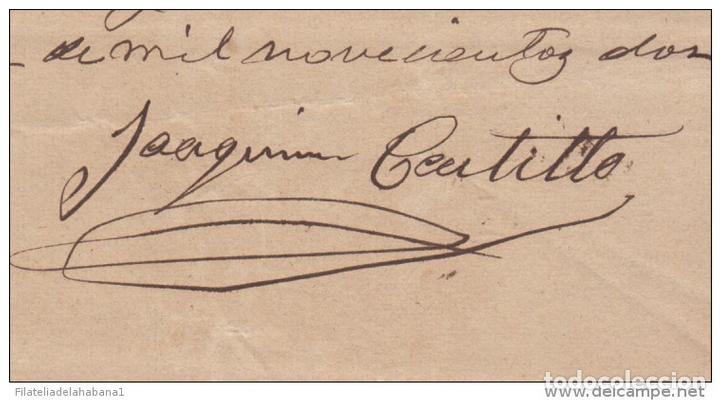 de mil novecientos dos
Joaquin Castillo
todocoleccion
Filateliadelahabana1
delcampe.net